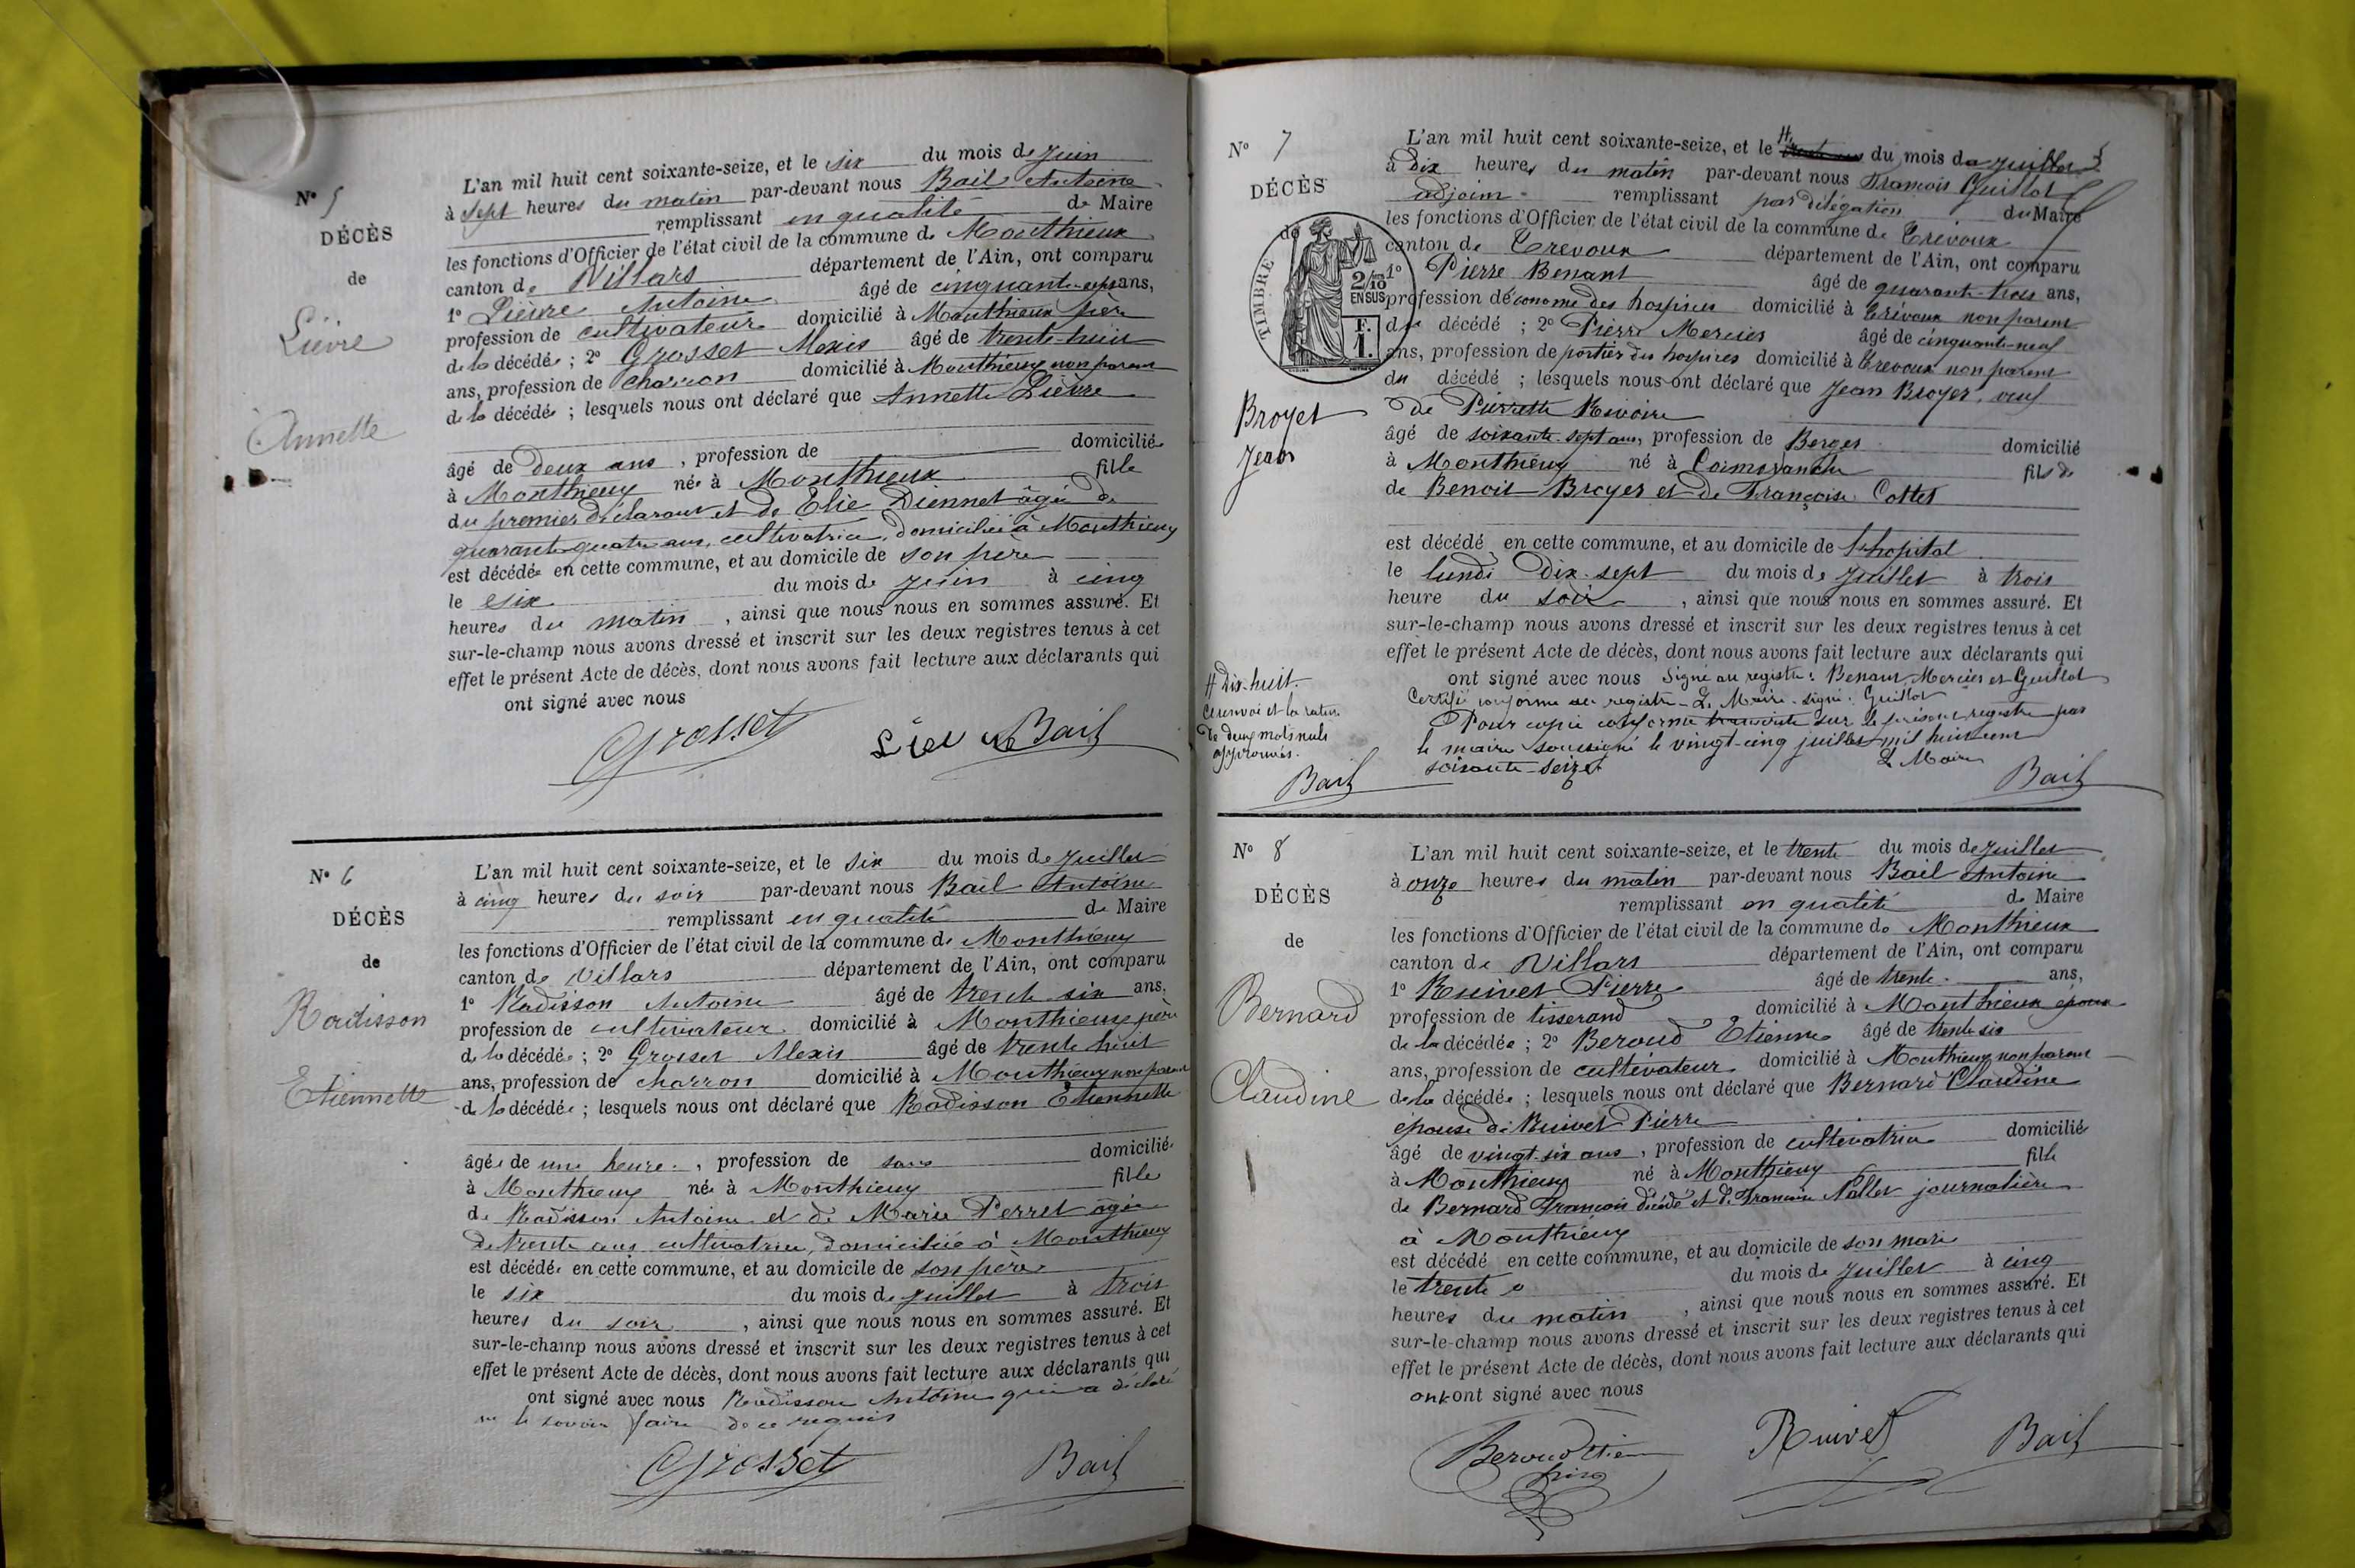 N° 5
DÉCÈS
de
Lièvre
Annette
L'an mil huit cent soixante-seize, et le six du mois de juin
à sept heures du matin par-devant nous Bail Antoine
remplissant en qualité de Maire
les fonctions d'Officier de l'état civil de la commune de Monthieux
canton de Villars département de l'Ain, ont comparu
1° Lièvre Antoine âgé de cinquante-sept ans,
profession de cultivateur domicilié à Monthieux père
de la décédée ; 2° Grosset Alexis âgé de trente-huit
ans, profession de charron domicilié à Monthieux non parent
de la décédée ; lesquels nous ont déclaré que Annette Lièvre
âgé de deux ans , profession de domiciliée
à Monthieux née à Monthieux fille
du premier déclarant et de Elie Diennet âgée de
quarante quatre ans, cultivatrice, domiciliée à Monthieux
est décédée en cette commune, et au domicile de son père
le six du mois de juin à cinq
heures du matin , ainsi que nous nous en sommes assuré. Et
sur-le-champ nous avons dressé et inscrit sur les deux registres tenus à cet
effet le présent Acte de décès, dont nous avons fait lecture aux déclarants qui
ont signé avec nous
Grosset Bail
N° 6
DÉCÈS
de
Radisson
Etiennette
L'an mil huit cent soixante-seize, et le six du mois de juillet
à cinq heures du soir par-devant nous Bail Antoine
remplissant en qualité de Maire
les fonctions d'Officier de l'état civil de la commune de Monthieux
canton de Villars département de l'Ain, ont comparu
1° Radisson Antoine âgé de trente six ans,
profession de cultivateur domicilié à Monthieux père
de la décédée ; 2° Grosset Alexis âgé de trente huit
ans, profession de charron domicilié à Monthieux non parent
de la décédée ; lesquels nous ont déclaré que Radisson Etiennette
âgée de une heure , profession de sans domiciliée
à Monthieux née à Monthieux fille
de Radisson Antoine et de Marie Perret âgée
de trente ans cultivatrice, domiciliée à Monthieux
est décédée en cette commune, et au domicile de son père
le six du mois de juillet à trois
heures du soir , ainsi que nous nous en sommes assuré. Et
sur-le-champ nous avons dressé et inscrit sur les deux registres tenus à cet
effet le présent Acte de décès, dont nous avons fait lecture aux déclarants qui
ont signé avec nous Radisson Antoine qui a déclaré
ne le savoir faire de ce requis
Grosset Bail
N° 7
DÉCÈS
de
TIMBRE
2/10
EN SUS
F.
1.
Broyer
Jean
L'an mil huit cent soixante-seize, et le # du mois de juillet
à dix heures du matin par-devant nous François Guillot
adjoint remplissant par délégation du Maire
les fonctions d'Officier de l'état civil de la commune de Trévoux
canton de Trevoux département de l'Ain, ont comparu
1° Pierre Benant âgé de quarante-trois ans,
profession d'économe des hospices domicilié à Trévoux non parent
du décédé ; 2° Pierre Mercier âgé de cinquante-neuf
ans, profession de portier des hospices domicilié à Trevoux non parent
du décédé ; lesquels nous ont déclaré que Jean Broyer, veuf
de Pierrette Revoire
âgé de soixante-sept ans, profession de Berger domicilié
à Monthieux né à fils de
de Benoit Broyer et de Françoise Cottet
est décédé en cette commune, et au domicile de l'hopital
le lundi dix-sept du mois de juillet à trois
heure du soir , ainsi que nous nous en sommes assuré. Et
sur-le-champ nous avons dressé et inscrit sur les deux registres tenus à cet
effet le présent Acte de décès, dont nous avons fait lecture aux déclarants qui
ont signé avec nous Signé au registre : Benant, Mercier et Guillot
Certifié conforme au registre - Le Maire signé : Guillot
Pour copie conforme transcrite sur le présent registre par
le maire soussigné le vingt-cinq juillet mil huit cent
soixante-seize
Le Maire
Bail
# Dix-huit.
Ce renvoi et la rature
de deux mots nuls
approuvés.
Bail
N° 8
DÉCÈS
de
Bernard
Claudine
L'an mil huit cent soixante-seize, et le trente du mois de juillet
à onze heures du matin par-devant nous Bail Antoine
remplissant en qualité de Maire
les fonctions d'Officier de l'état civil de la commune de Monthieux
canton de Villars département de l'Ain, ont comparu
1° Ruivet Pierre âgé de trente ans,
profession de tisserand domicilié à Monthieux époux
de la décédée ; 2° Beroud Etienne âgé de trente six
ans, profession de cultivateur domicilié à Monthieux non parent
de la décédée ; lesquels nous ont déclaré que Bernard Claudine
épouse de Ruivet Pierre
âgé de vingt-six ans , profession de cultivatrice domicilié
à Monthieux né à Monthieux fille
de Bernard François décédé et de Françoise journalière
à Monthieux
est décédé en cette commune, et au domicile de son mari
le trente du mois de juillet à cinq
heures du matin , ainsi que nous nous en sommes assuré. Et
sur-le-champ nous avons dressé et inscrit sur les deux registres tenus à cet
effet le présent Acte de décès, dont nous avons fait lecture aux déclarants qui
ont ont signé avec nous
Beroud Ruivet Bail